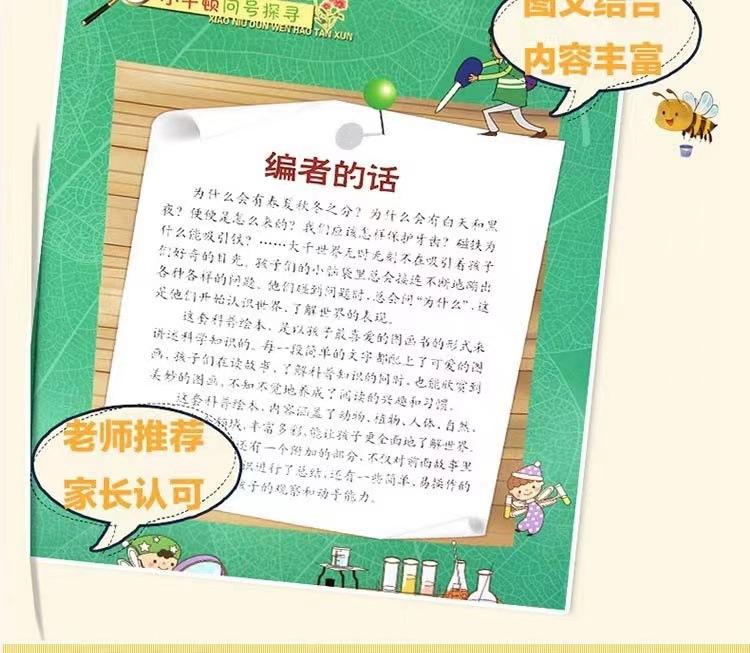 小牛顿问号探寻
XIAO NIU DUN WEN HAO TAN XUN
图文结合
内容丰富
编者的话
为什么会有春夏秋冬之分？为什么会有白天和黑
夜？便便是怎么来的？我们应该怎样保护牙齿？磁铁为
什么能吸引铁？……大千世界无时无刻不在吸引着孩子
们好奇的目光。孩子们的小脑袋里总会接连不断地蹦出
各种各样的问题。他们碰到问题时，总会问“为什么”，这
是他们开始认识世界、了解世界的表现。
这套科普绘本，是以孩子最喜爱的图画书的形式来
讲述科学知识的。每一段简单的文字都配上了可爱的图
画，孩子们在读故事、了解科普知识的同时，也能欣赏到
美妙的图画，不知不觉地养成了阅读的兴趣和习惯。
这套科普绘本，内容涵盖了动物、植物、人体、自然、
领域，丰富多彩，能让孩子更全面地了解世界。
还有一个附加的部分，不仅对前面故事里
识进行了总结，还有一些简单、易操作的
孩子的观察和动手能力。
老师推荐
家长认可